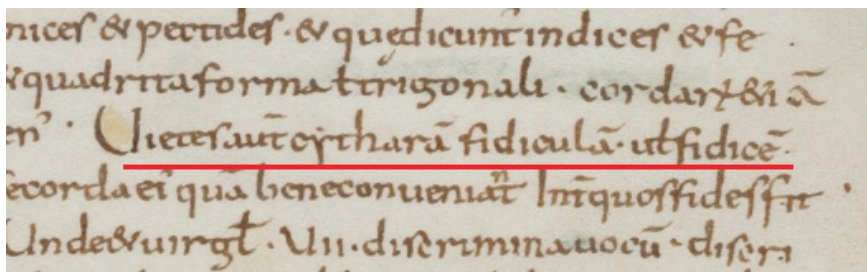 nices & pectides · & quędicunt̄ indices & fe
& quadrataforma ł trigonali · cordarꝝ &iā
en᾿ · Uietesaut̄ cytharā fidiculā · uł fidicē ·
ecorda ei᾿ quā beneconueniat̄ Int̄quosfidessit
Unde & uirgł · Uii · discriminauocū · discri